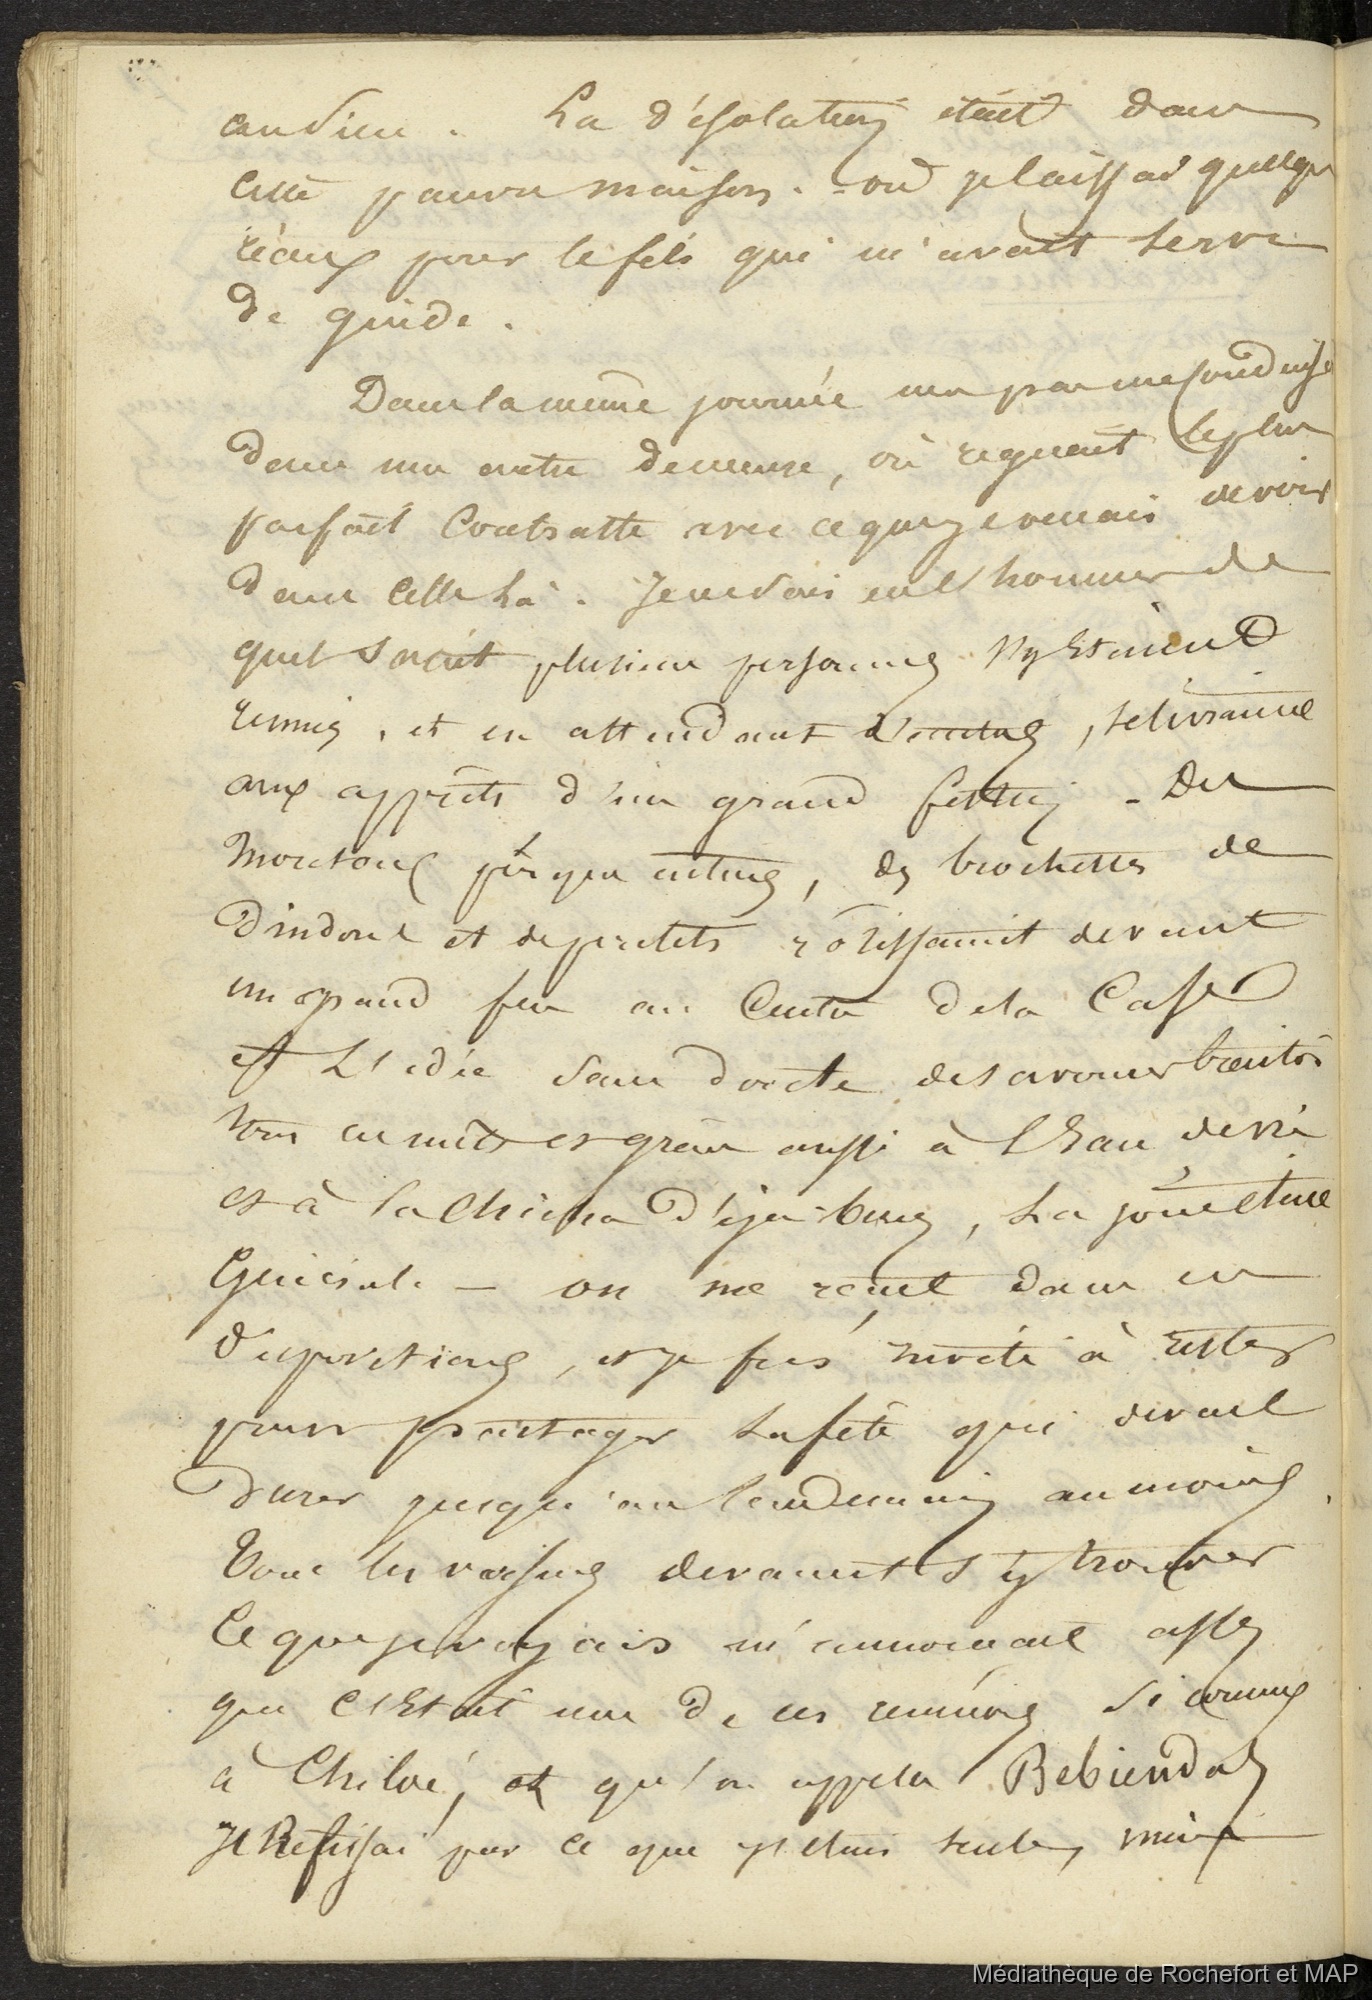 La désolation était dans
cette pauvre maison. - où je laissai quelques
réaux pour le fils qui m'avait servi
de guide.
Dans la même journée on me conduisit
dans une autre demeure, où regnait le plus
parfait Contraste avec ce que je venais de voir
dans Celle là. Je vis l'honneur de
plusieurs personnes s'y étaient
reunies, et en attendant , se livraient
aux apprêts d'un grand festin - Des
moutons entiers, des brochettes de
Dindons et de poulets rôtissaient devant
un grand feu au Centre de la Case
et L'idée sans doute de savourer bientôt
tous ces mets et grâce aussi à l'Eau de vie
et à la Chicha déjà bues, la joie était
Générale - on me reçut dans ces
dispositions, et je fus invité à rester
pour partager la fête qui devait
Durer jusqu'au lendemain au moins.
Tous les voisins devaient s'y trouver
Ce que je voyais m'annonçait assez
que C'Etait une de ces reunions si communes
à Chiloé, et qu'on appela Bebiendas
Je Refusai par ce que j'étais seul,